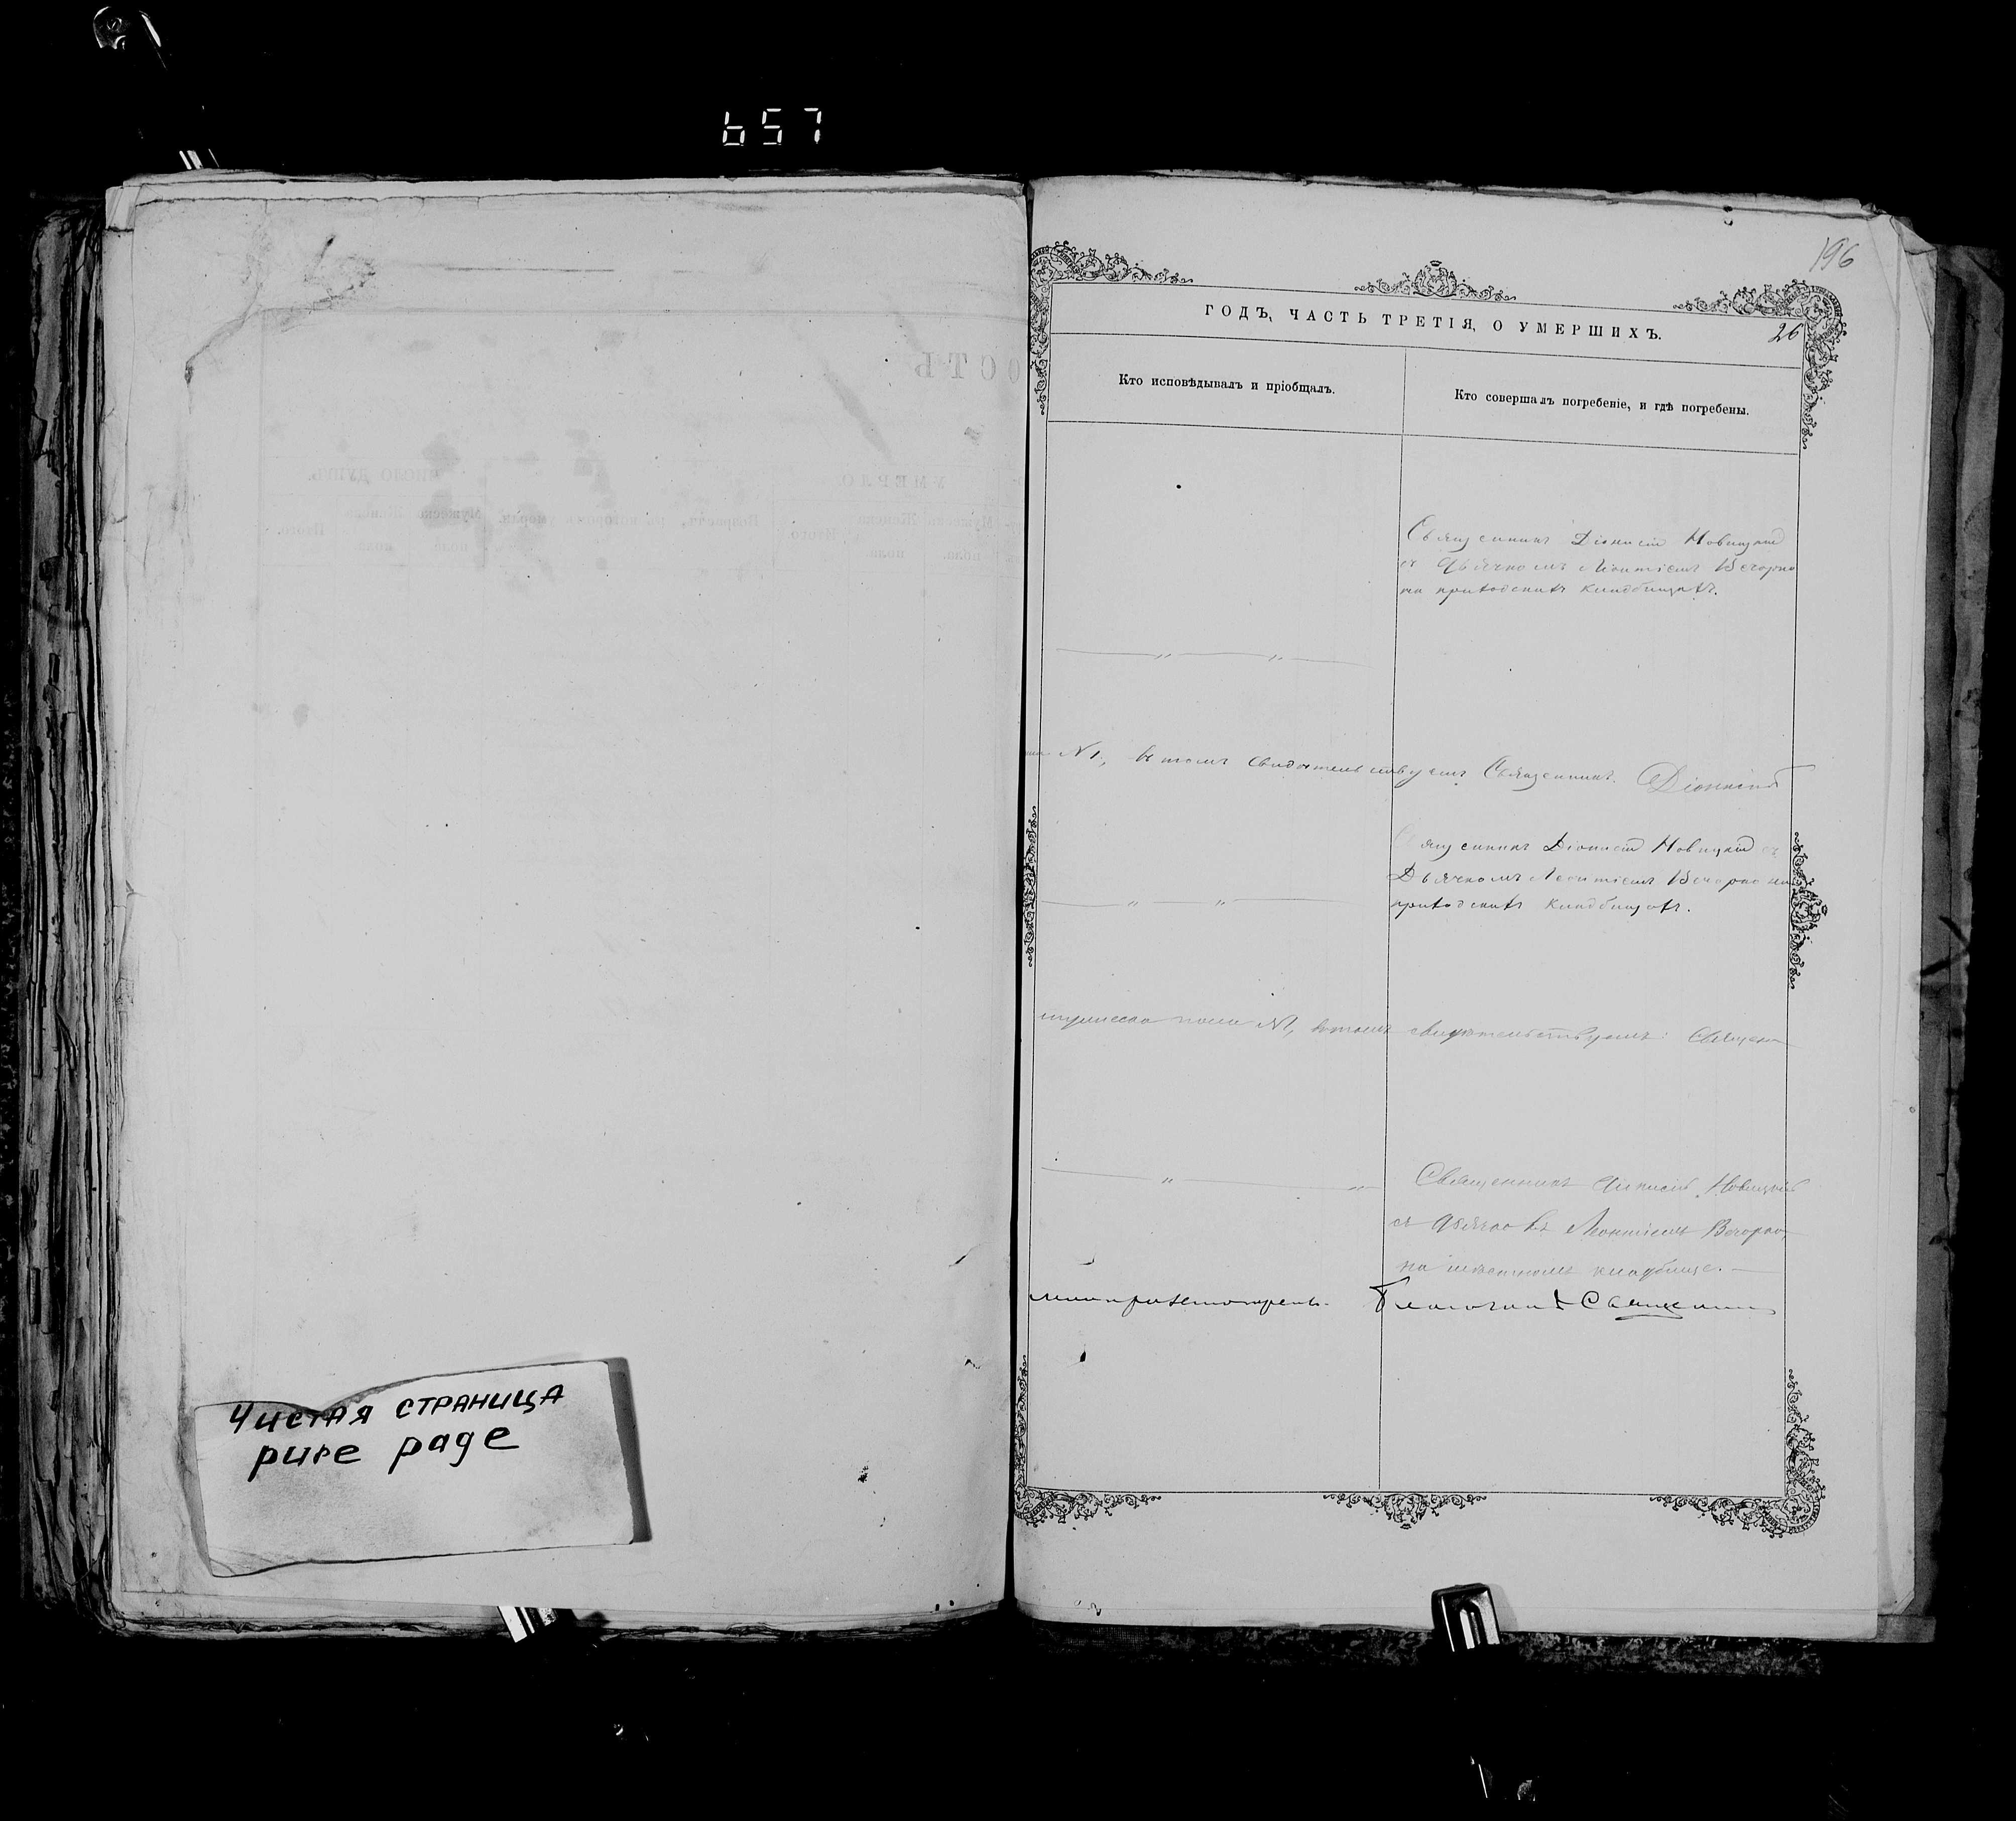 657
196
ГОДЪ, ЧАСТЬ ТРЕТІЯ, О УМЕРШИХЪ.
26
Кто исповѣдывалъ и пріобщалъ.
Кто совершалъ погребеніе, и гдѣ погребены.
Священникъ Діонисій Новицкій
съ Дьячкомъ Леонтіемъ Вечорко
на приходскомъ кладбищѣ.
№ 1, въ томъ свидѣтельствуемъ: Священникъ Діонисій
Священникъ Діонисій Новицкій съ
Дьячкомъ Леонтіемъ Вечорко на
приходскомъ кладбищѣ.
мужеска пола №1, въ томъ свидѣтельствуемъ: Священ
Священникъ Діонисій Новицкій
съ Леонтіемъ Вечорко,
на мѣстномъ кладбище.
Благочин Священник
Чистая страница
pure page